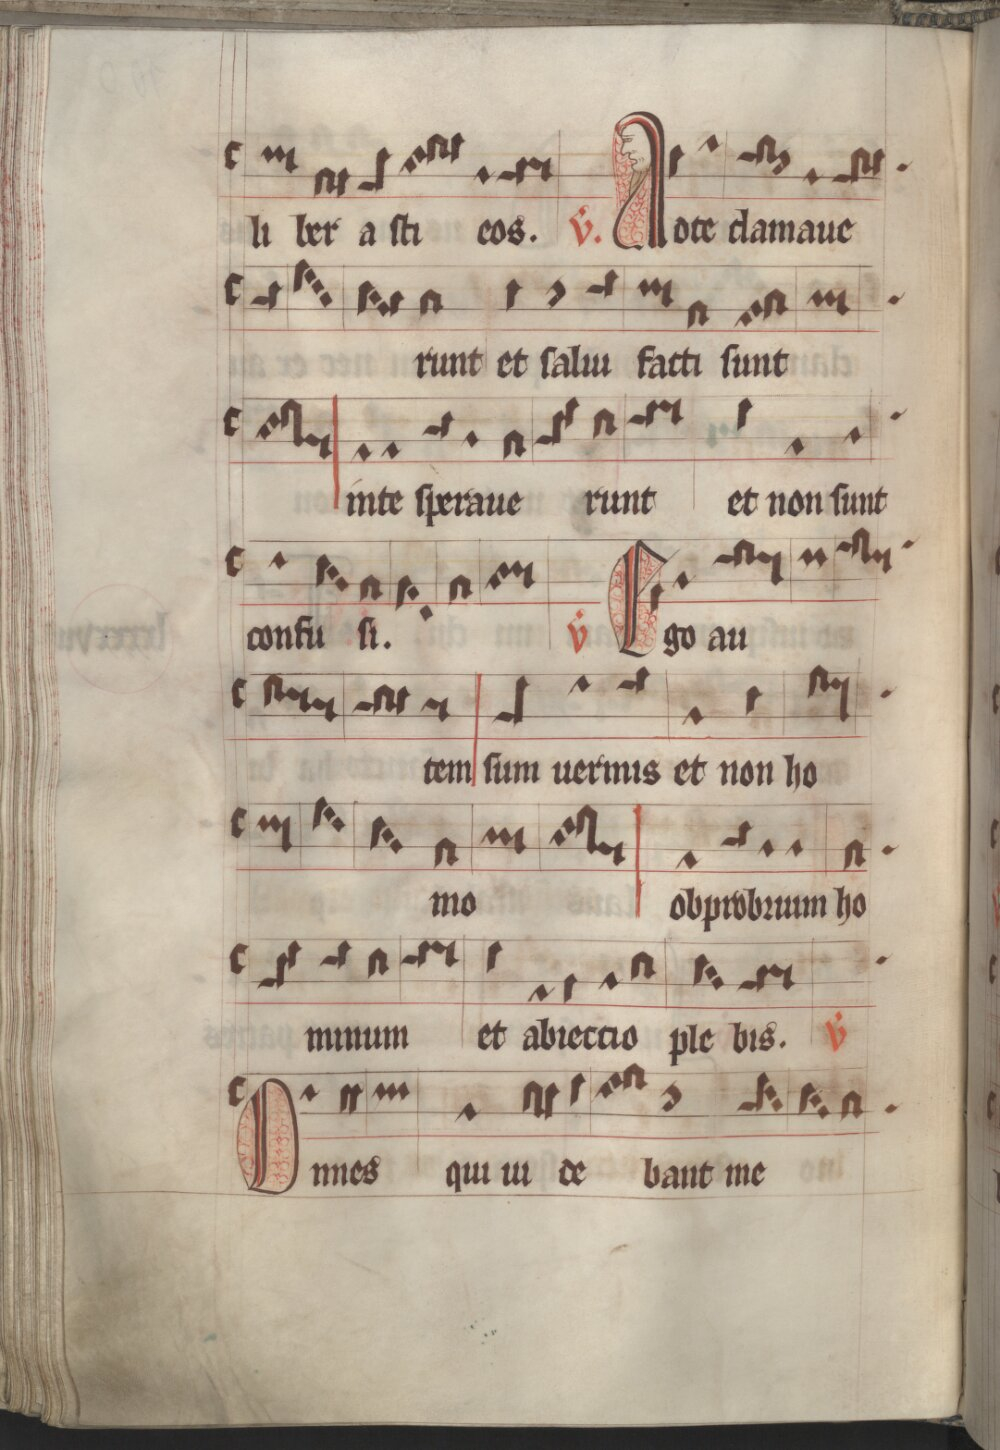 li ber a sti eos. V. Ad te clamaue
runt et salui facti sunt
in te speraue runt et non sunt
confu si. V Ego au
tem sum uermis et non ho
mo obprobrium ho
minum et abiectio ple bis. V
Omnes qui ui de bant me